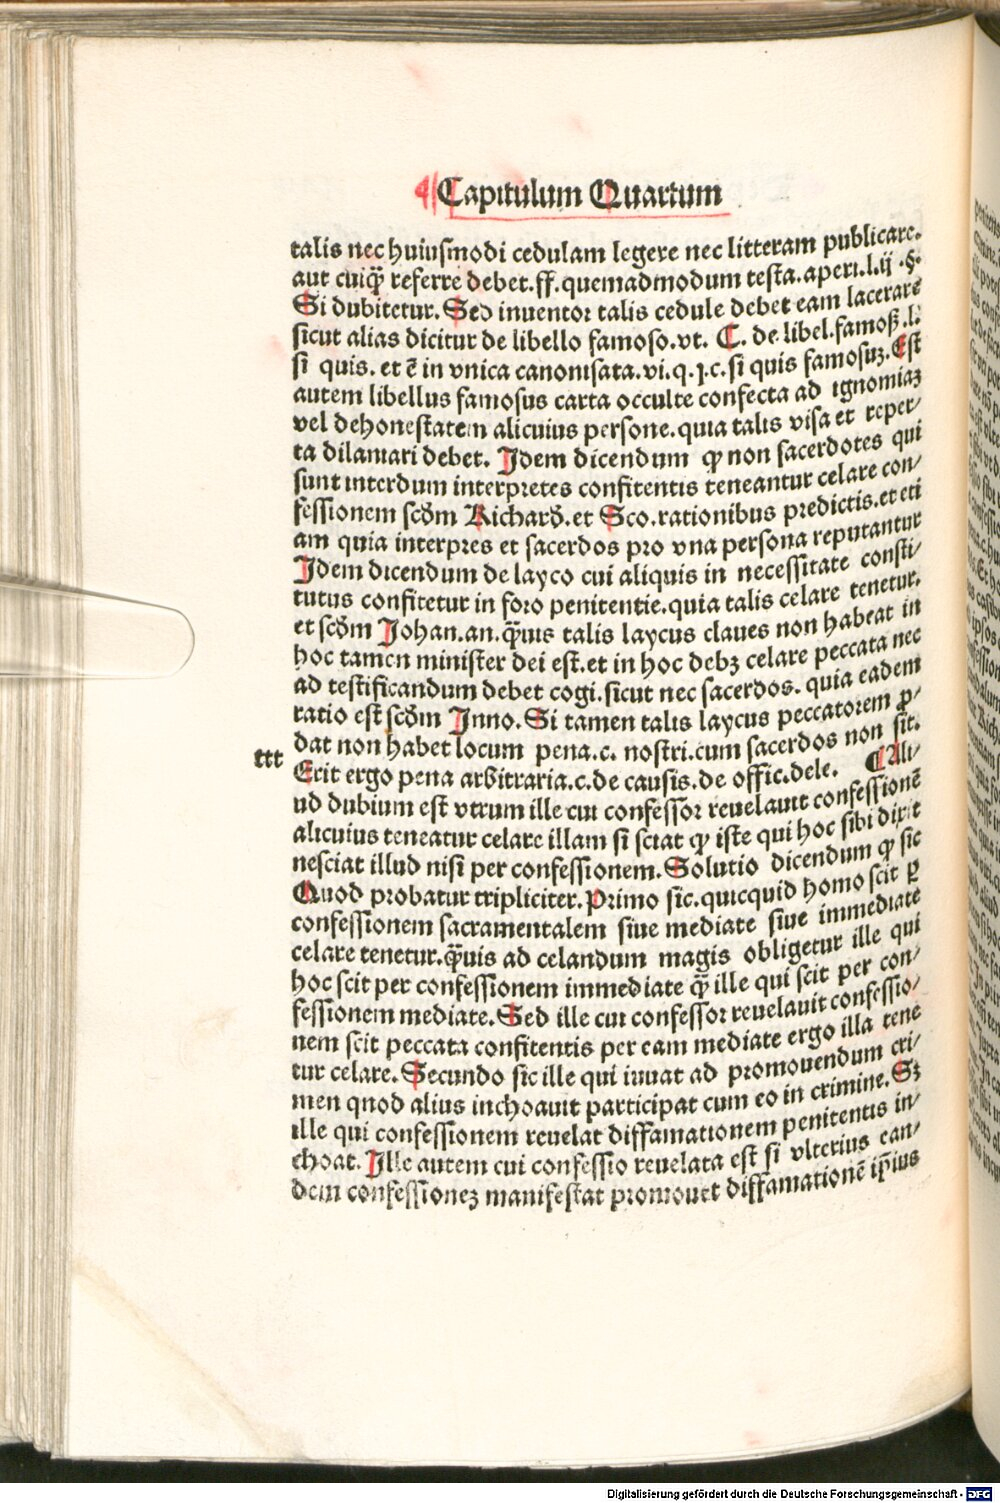 ¶ Capitulum Quartum
talis nec huiusmodi cedulam legere nec litteram publicare.
aut cuiꝙ̃ referre debet.ff.quemadmodum testa.aperi.l.ij.§.
Si dubitetur. Sed inuentor talis cedule debet eam lacerare
sicut alias dicitur de libello famoso.vt. C. de libel.famoß.l.
si quis. et ẽ in vnica canonisata.vi.q.j.c.si quis famosuꝫ. Est
autem libellus famosus carta occulte confecta ad ignomiaꝫ
vel dehonestatem alicuius persone.quia talis visa et reper/
ta dilaniari debet. Idem dicendum ꝙ non sacerdotes qui
sunt interdum interpretes confitentis teneantur celare con/
fessionem scḋm Richard.et Sco.rationibus predictis.et eti
am quia interpres et sacerdos pro vna persona reputantur
Idem dicendum de layco cui aliquis in necessitate consti/
tutus confitetur in foro penitentie.quia talis celare tenetur.
et scḋm Johan.an.ꝙ̃uis talis laycus claues non habeat in
hoc tamen minister dei est.et in hoc debꝫ celare peccata nec
ad testificandum debet cogi.sicut nec sacerdos. quia eadem
ratio est scḋm Inno. Si tamen talis laycus peccatorem ꝓ/
dat non habet locum pena.c. nostri.cum sacerdos non sit.
ttt
Erit ergo pena arbitraria.c.de causis.de offic.dele. ¶ Ali/
ud dubium est vtrum ille cui confessor reuelauit confessionẽ
alicuius teneatur celare illam si sciat ꝙ iste qui hoc sibi dixit
nesciat illud nisi per confessionem. Solutio dicendum ꝙ sic
Quod probatur tripliciter. Primo sic.quicquid homo scit ꝑ
confessionem sacramentalem siue mediate siue immediate
celare tenetur.ꝙ̃uis ad celandum magis obligetur ille qui
hoc scit per confessionem immediate ꝙ̃ ille qui scit per con/
fessionem mediate. Sed ille cui confessor reuelauit confessio/
nem scit peccata confitentis per eam mediate ergo illa tene
tur celare. Secundo sic ille qui iuuat ad promouendum cri/
men quod alius inchoauit participat cum eo in crimine. Sꝫ
ille qui confessionem reuelat diffamationem penitentis in/
choat. Ille autem cui confessio reuelata est si vlterius ean/
dem confessioneꝫ manifestat promouet diffamationẽ ip̃ius
Digitalisierung gefördert durch die Deutsche Forschungsgemeinschaft - DFG